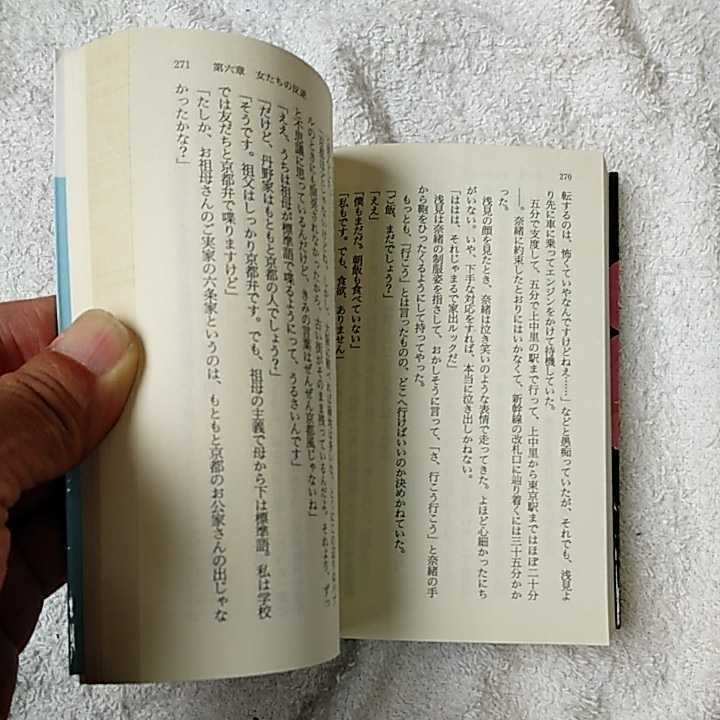 270
転するのは、怖くていやなんですけどねえ……」などと愚痴っていたが、それでも、浅見よ
り先に車に乗ってエンジンをかけて待機していた。
五分で支度して、五分で上中里の駅まで行って、上中里から東京駅まではほぼ二十分
――。奈緒に約束したとおりにはいかなくて、新幹線の改札口に辿り着くには三十五分かか
った。
浅見の顔を見たとき、奈緒は泣き笑いのような表情で走ってきた。よほど心細かったにち
がいない。いや、下手な対応をすれば、本当に泣き出しかねない。
「ははは、それじゃまるで家出ルックだ」
浅見は奈緒の制服姿を指さして、おかしそうに言って、「さ、行こう行こう」と奈緒の手
から鞄をひったくるようにして持ってやった。
もっとも、「行こう」とは言ったものの、どこへ行けばいいのか決めかねていた。
「ご飯、まだでしょう?」
「ええ」
「僕もまだだ。朝飯も食べていない」
「私もです。でも、食欲、ありません」
271 第六章 女たちの反逆
と不思議に思っているんだけど、きみの言葉はぜんぜん京都風じゃないね」
「ええ、うちは祖母が標準語で喋るようにって、うるさいんです」
「だけど、丹野家はもともと京都の人でしょう?」
「そうです。祖父はしっかり京都弁です。でも、祖母の主義で母から下は標準語。私は学校
では友だちと京都弁で喋りますけど」
「たしか、お祖母さんのご実家の六条家というのは、もともと京都のお公家さんの出じゃな
かったかな?」